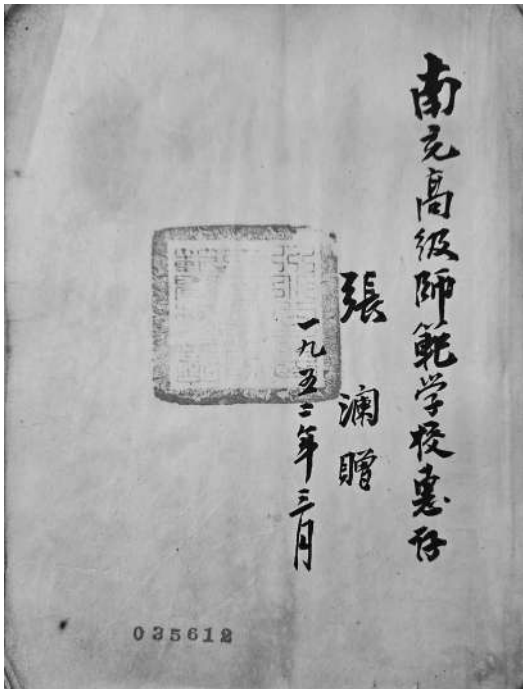 南充高级師範学校惠存
張瀾贈
一九五二年三月
035612